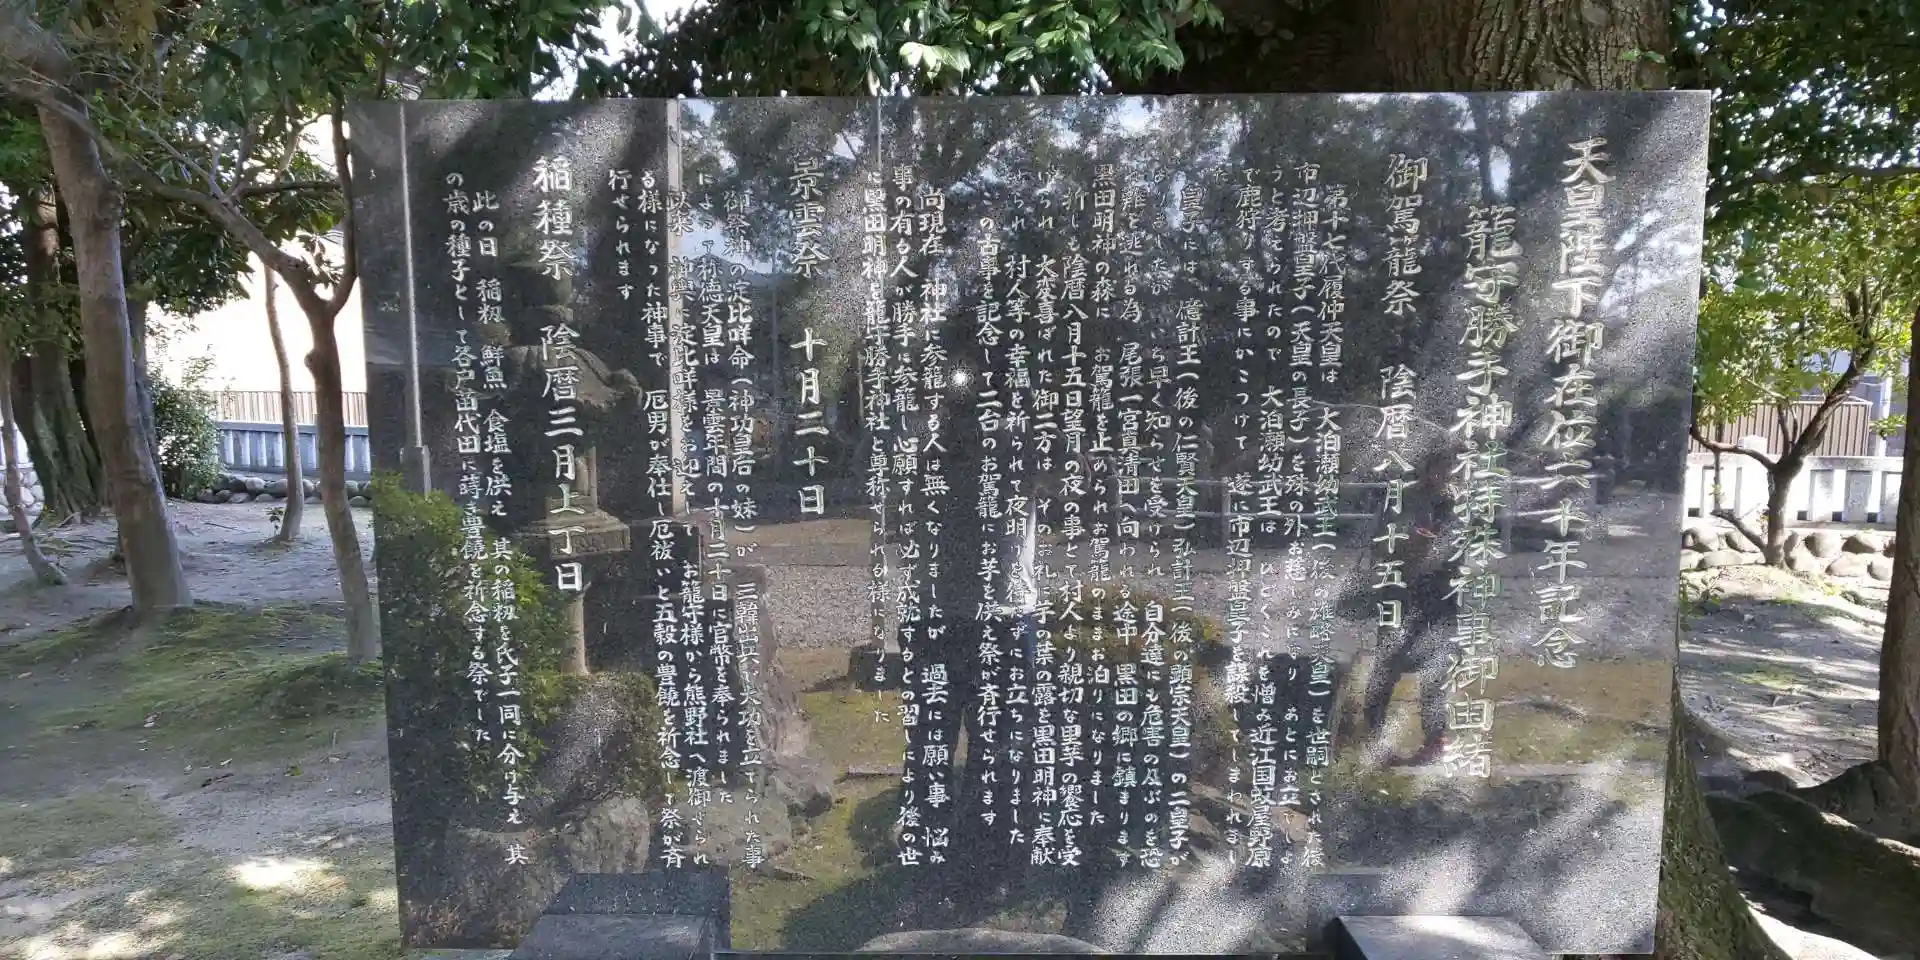 天皇陛下御在位六十年記念
籠守勝手神社特殊神事御由緒
御駕籠祭 陰暦八月十五日
第十七代履仲天皇は 大泊瀬幼武王(後の雄略天皇)を世嗣とされた後
市辺押盤皇子(天皇の長子)を殊の外お慈しみになり あとにお立てしよ
うと考えられたので 大泊瀬幼武王は ひどくこれを憎み近江国蚊屋野原
で鹿狩りする事にかこつけて 遂に市辺押盤皇子を謀殺してしまわれまし
た
皇子には 億計王(後の仁賢天皇)弘計王(後の顕宗天皇)の二皇子が
ありましたが いち早く知らせを受けられ 自分達にも危害の及ぶのを恐
れ難を逃れる為 尾張一宮真清田へ向われる途中 黒田の郷に鎮まります
黒田明神の森に お駕籠を止められお駕籠のままお泊りになりました
折しも陰暦八月十五日望月の夜の事とて村人より親切な里芋の饗応を受
けられ 大変喜ばれた御二方は そのお礼に芋の葉の露を黒田明神に奉献
せられ 村人等の幸福を祈られて夜明けを待たずにお立ちになりました
この古事を記念して二台のお駕籠にお芋を供え祭が斉行せられます
尚現在 神社に参籠する人は無くなりましたが 過去には願い事 悩み
事の有る人が勝手に参籠し心願すれば必ず成就するとの習しにより後の世
に黒田明神を籠守勝手神社と尊称せられる様になりました
景雲祭 十月二十日
御祭神の淀比咩命(神功皇后の妹)が 三韓出兵で大功を立てられた事
によって称徳天皇は 景雲年間の十月二十日に官幣を奉られました
以来 神輿に淀比咩様をお迎えして お籠守様から熊野社へ渡御せられ
る様になった神事で 厄男が奉仕し厄祓いと五穀の豊饒を祈念して祭が斉
行せられます
稲種祭 陰暦三月上丁日
此の日 稲籾 鮮魚 食塩を供え 其の稲籾を氏子一同に分け与え 其
の歳の種子として各戸苗代田に蒔き豊饒を祈念する祭でした